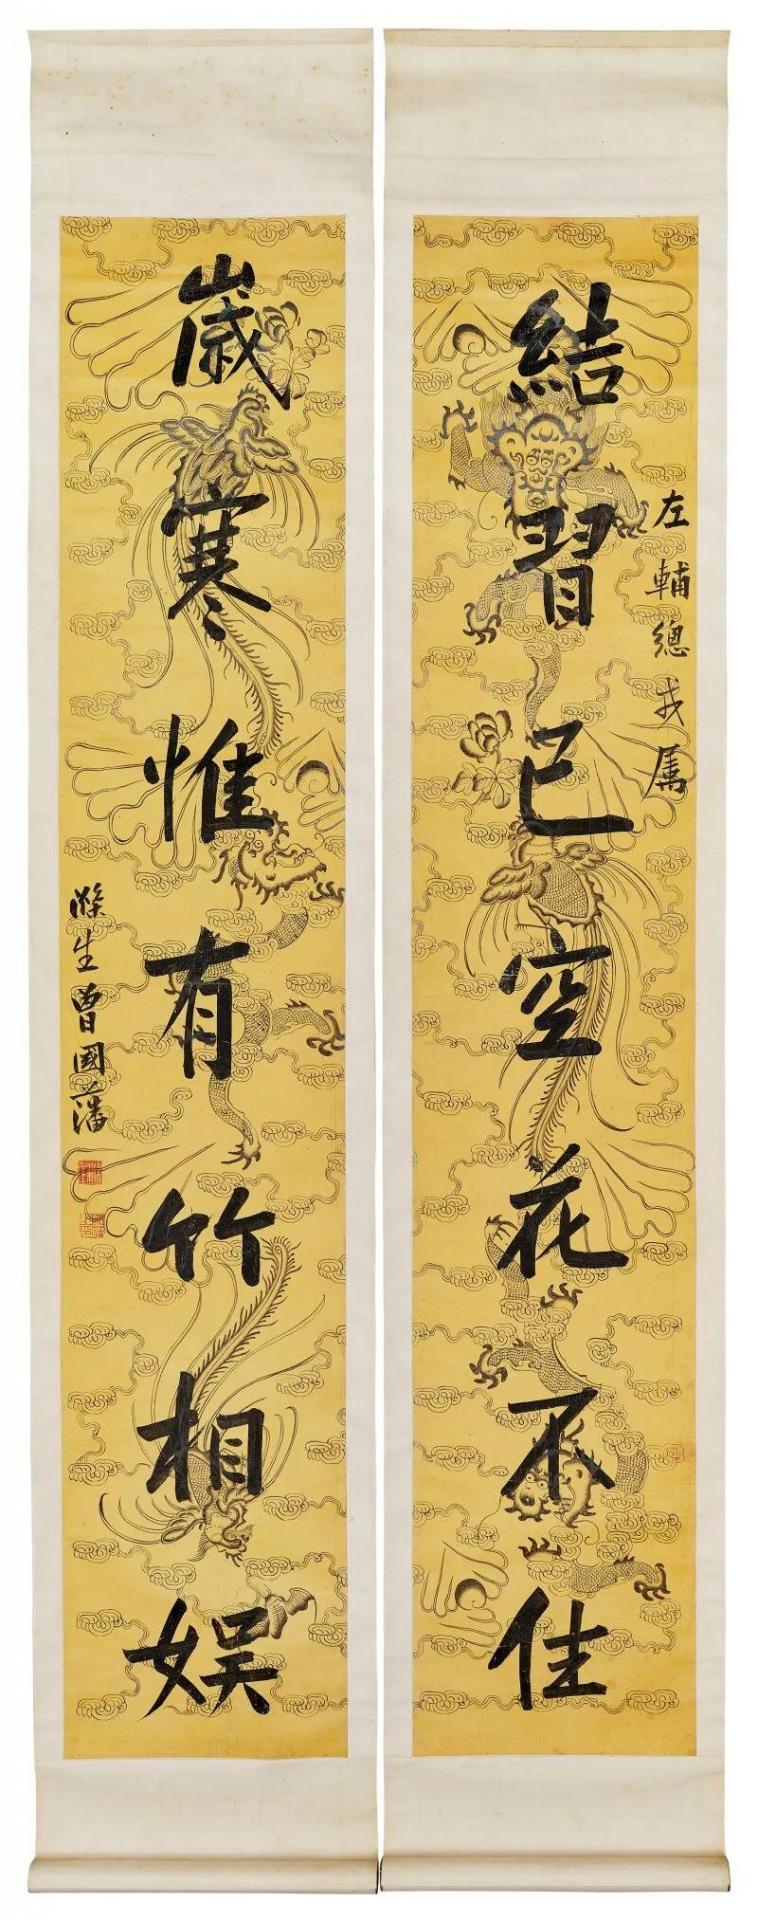 左輔總戎属
結習已空花不住
歲寒惟有竹相娛
滌生曾國藩